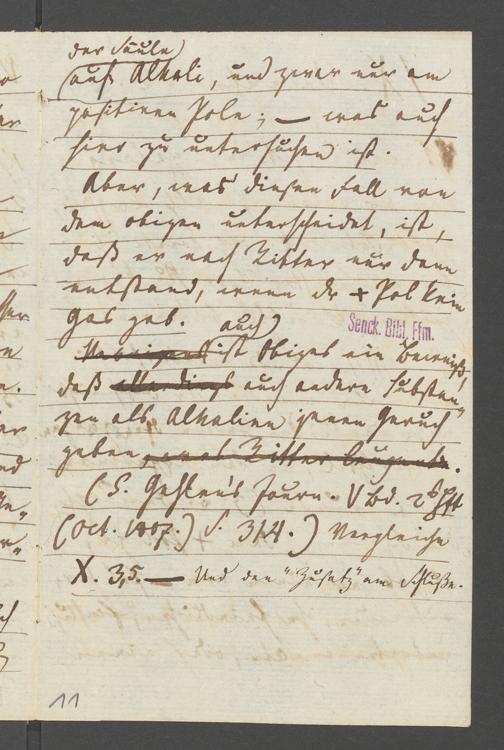 der Säule)
(auf Alkali, und zwar nur am
positiven Pole; — was auch
hier zu untersuchen ist.
Aber, was diesen Fall von
dem obigen unterscheidet, ist,
daß er nach Ritter nur dann
entstand, wenn der + Pol kein
Gas gab.
auch)
Senck. Bibl. Ffm.
Uebrigens ist Obiges ein Beweis,
daß allerdings auch andere Substan"
zen als Alkalien jenen Geruch
geben, was Ritter leugnete.
(S. Gehlen's Journ. V Bd. 2s Hft
(Oct. 1807.) S. 314.) Vergleiche
X. 3,5. — Und den "Zusatz" am Schluße.
11